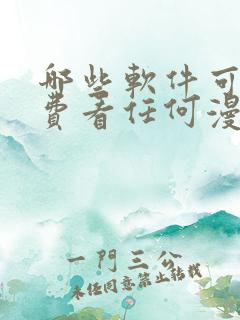 哪些軟件可
費看任何漫
一門三公
未經同意禁止轉載